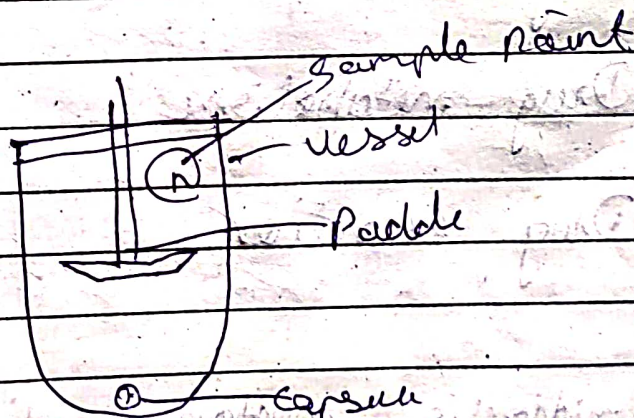 Sample Point
Vessel
Paddle
Capsule